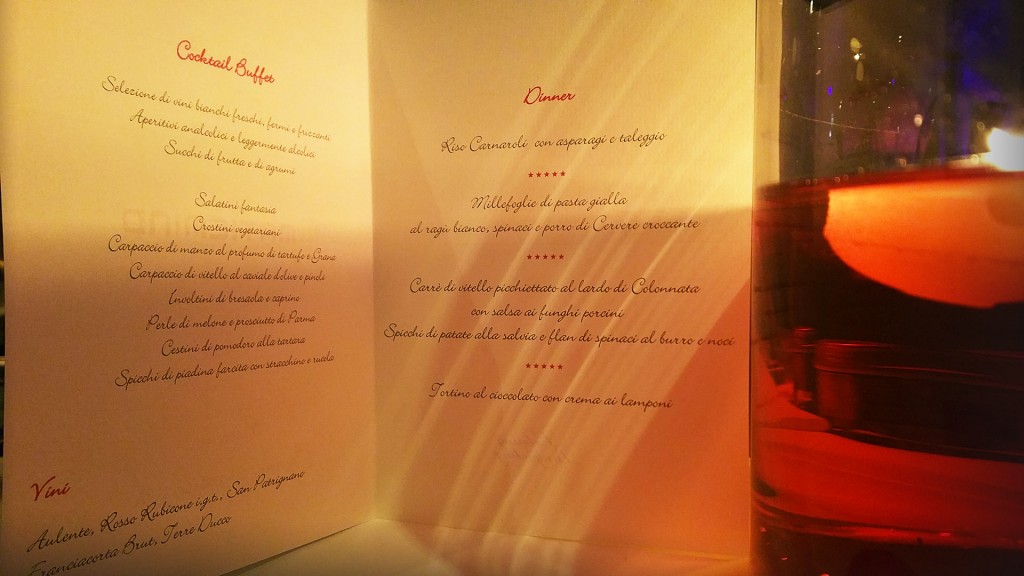 Cocktail Buffet
Selezione di vini bianchi freschi, fermi e frizzanti
Aperitivi analcolici e leggermente alcolici
Succhi di frutta e di agrumi
Salatini fantasia
Crostini vegetariani
Carpaccio di manzo al profumo di tartufo e Grana
Carpaccio di vitello al caviale d'olive e pinoli
Involtini di bresaola e caprine
Perle di melone e prosciutto di Parma
Cestini di pomodoro alla tartara
Spicchi di piadina farcita con stracchino e rucola
Vini
Aulente, Rosso Rubicone i.g.t., San Patrignano
Franciacorta Brut, Terre Ducco
Dinner
Riso Carnaroli con asparagi e taleggio
*****
Millefoglie di pasta gialla
al ragù bianco, spinaci e porro di Cervere croccante
*****
Carrè di vitello picchiettato al lardo di Colonnata
con salsa ai funghi porcini
Spicchi di patate alla salvia e flan di spinaci al burro e noci
*****
Tortino al cioccolato con crema ai lamponi